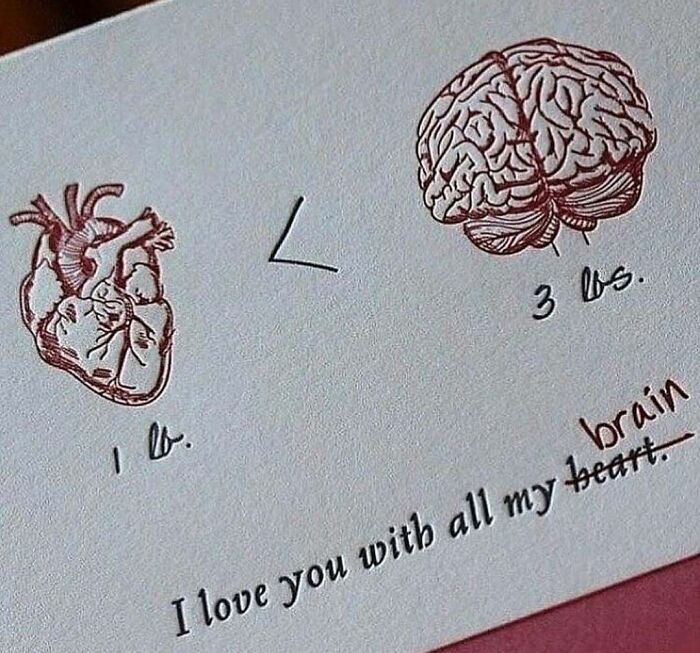 <
1 lb.
3 lbs.
brain
I love you with all my heart.